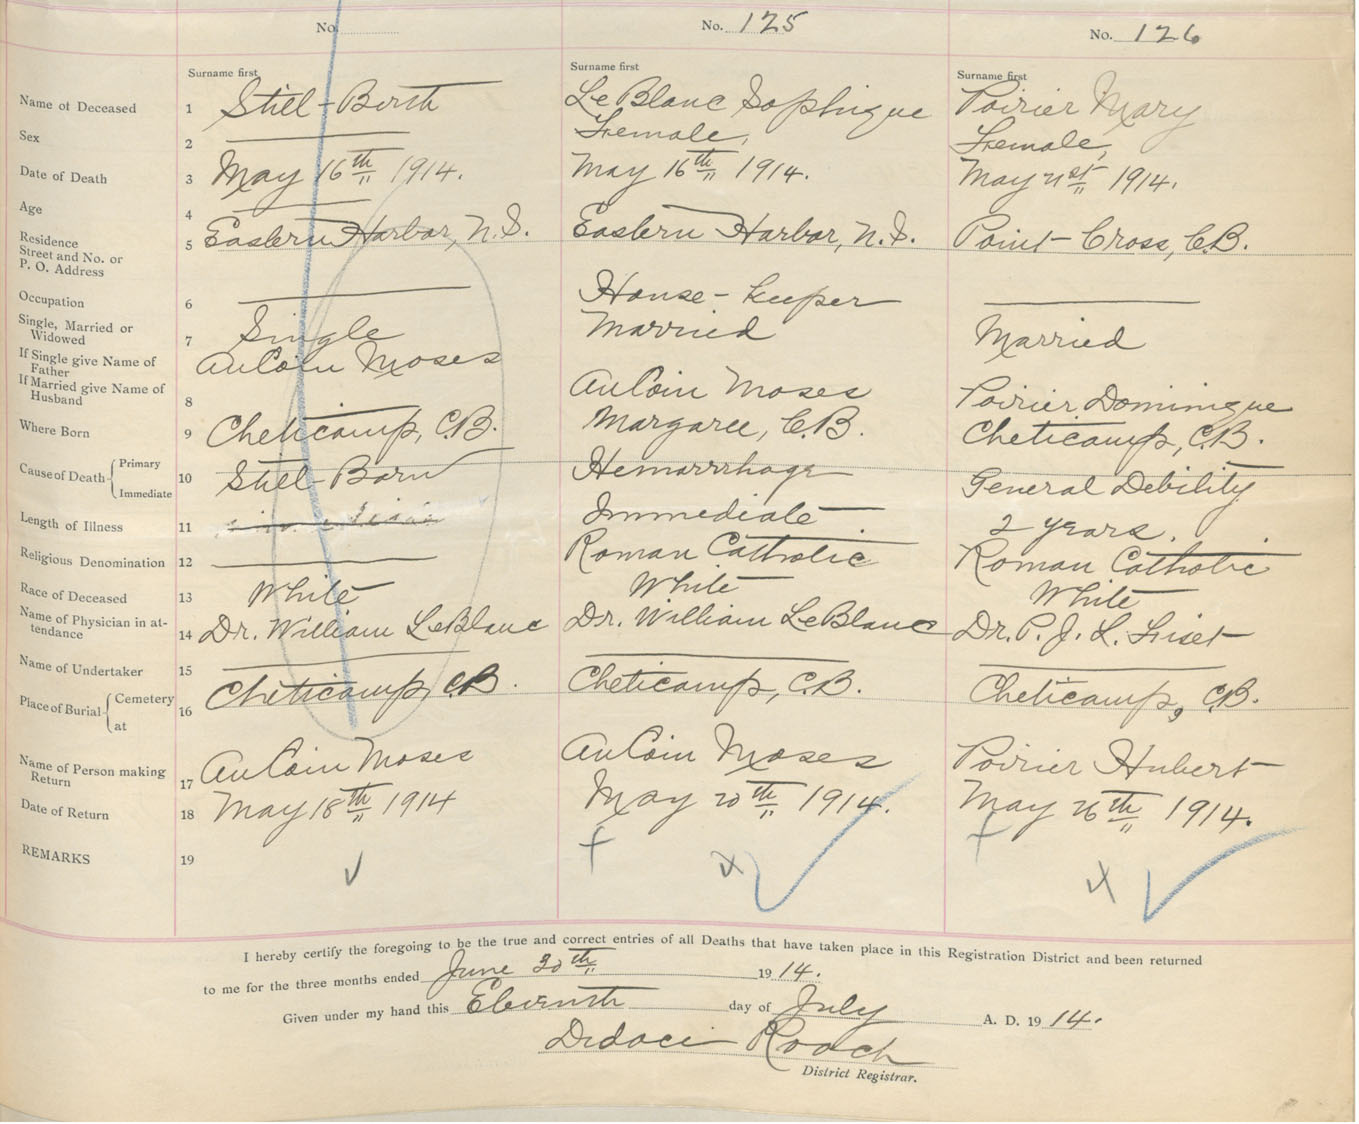 No. No. 125 No. 126
Surname first Surname first Surname first
Name of Deceased 1 Still-Birth LeBlanc Sophique Poirier Mary
Sex 2 Female, Female,
Date of Death 3 May 16th 1914. May 16th 1914. May 21st 1914.
Age 4
Residence
Street and No. or
P. O. Address 5 Eastern Harbor, N.S. Eastern Harbor, N.S. Point-Cross, C.B.
Occupation 6 House-keeper
Single, Married or
Widowed 7 Single Married Married
If Single give Name of
Father AuCoin Moses
If Married give Name of
Husband 8 AuCoin Moses Poirier Dominique
Where Born 9 Cheticamp, C.B. Margaree, C.B. Cheticamp, C.B.
Cause of Death Primary
Immediate 10 Still-Born Hemorrhage General Debility
Length of Illness 11 Immediate 2 years.
Religious Denomination 12 Roman Catholic Roman Catholic
Race of Deceased 13 White White White
Name of Physician in at-
tendance 14 Dr. William LeBlanc Dr. William LeBlanc Dr. P. J. L. Fiset
Name of Undertaker 15
Place of Burial Cemetery
at 16 Cheticamp, C.B. Cheticamp, C.B. Cheticamp, C.B.
Name of Person making
Return 17 AuCoin Moses AuCoin Moses Poirier Hubert
Date of Return 18 May 18th 1914 May 20th 1914. May 26th 1914.
REMARKS 19
I hereby certify the foregoing to be the true and correct entries of all Deaths that have taken place in this Registration District and been returned
to me for the three months ended June 30th 1914.
Given under my hand this Eleventh day of July A. D. 1914.
Didaci Roach
District Registrar.